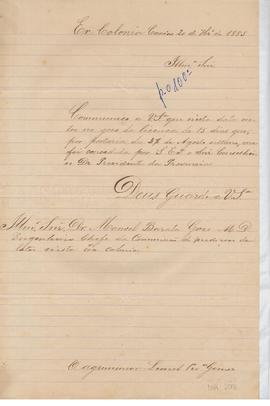 Ex Colonia Caxias 20 de 7bro de 1885
Illmo Snr
p.0100
Communico a V.Sa que nesta data en-
tro no goso da licença de 15 dias que,
por portaria de 28 de Agosto ultimo, me
foi concedida por S. Ex.a o Snr Conselhei-
ro Dr Presidente da Provincia
Deus Guarde a V.Sa
Illmo Snr. Dr. Manoel Barata Goes M. D.
Engenheiro Chefe da Commissão de medição de
lotes nesta Ex colonia
O agrimensor Leonel Gomes